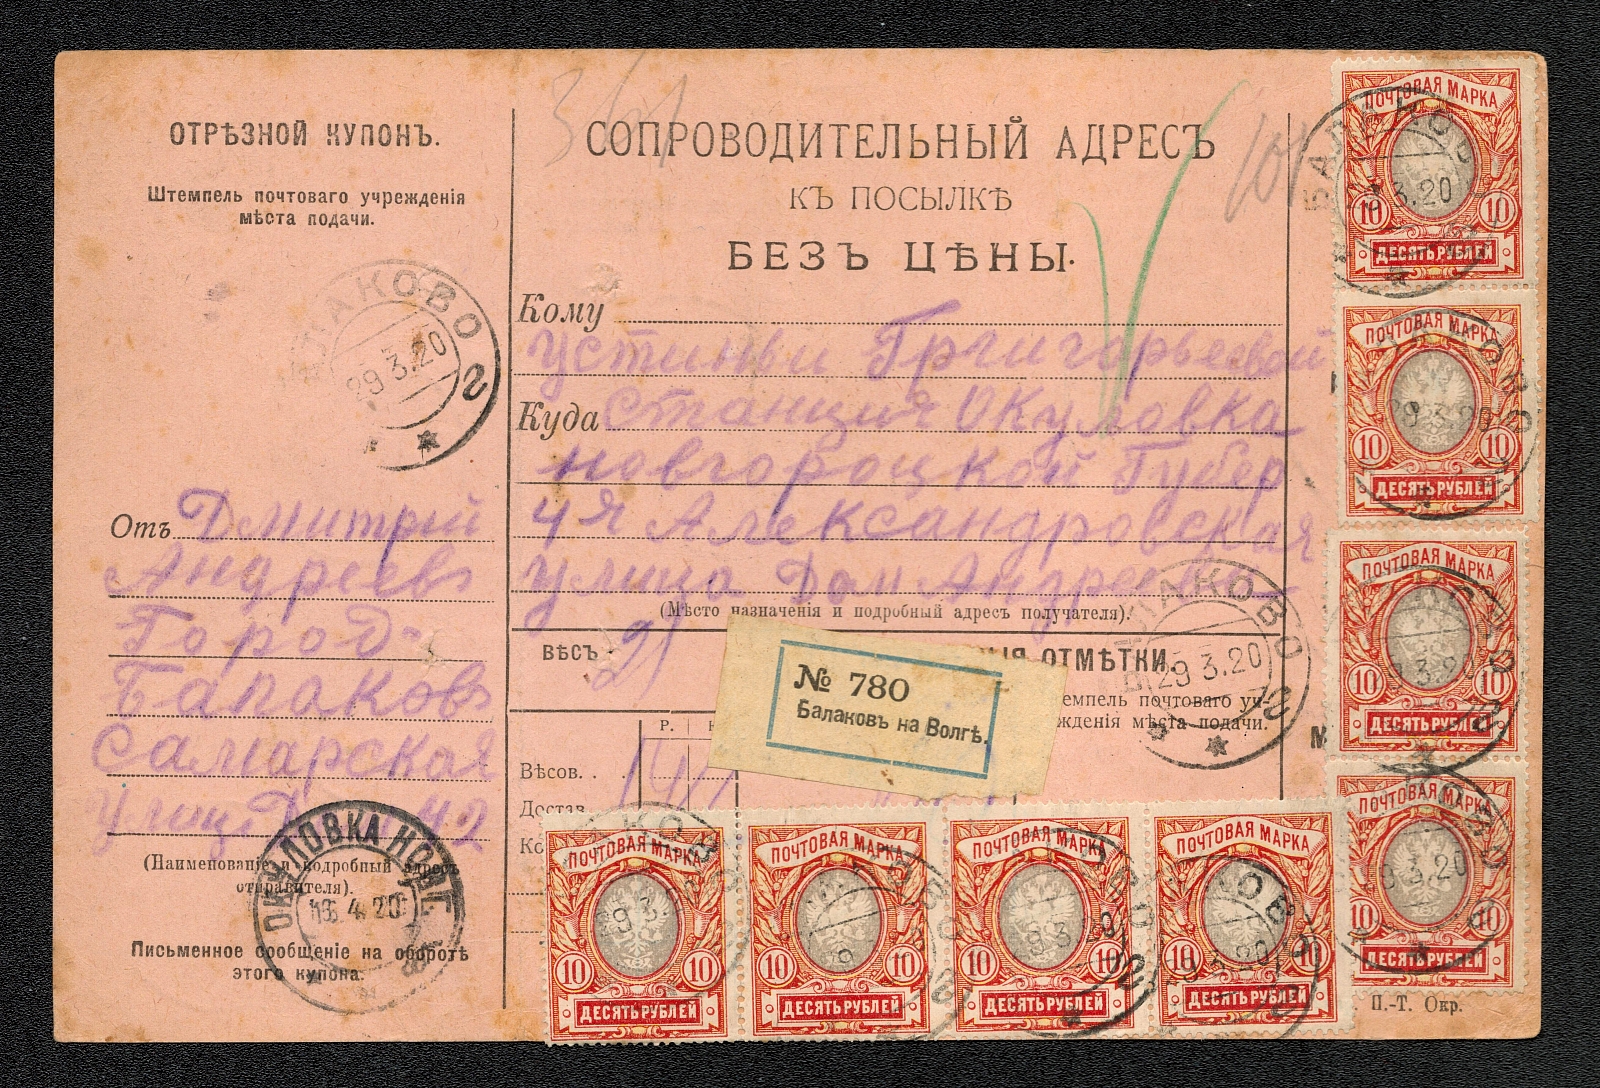 ОТРѢЗНОЙ КУПОНЪ.
Штемпель почтоваго учрежденія
мѣста подачи.
БАЛАКОВО 2
29 3.20
Отъ Дмитрій
Андреевъ
Город
Балаковъ
Самарская
улица
(Наименованіе и подробный адресъ
отправителя).
ОКУЛОВКА НОВГ.
4.20
Письменное сообщеніе на оборотѣ
этого купона.
СОПРОВОДИТЕЛЬНЫЙ АДРЕСЪ
КЪ ПОСЫЛКѢ
БЕЗЪ ЦѢНЫ.
Кому
Устиньи Григорьевой
Куда Станция Окуловка
новгороцкой Губер
4я Александровская
улица Дом Андреева
(Мѣсто назначенія и подробный адресъ получателя).
ВѢСЪ
ОТМѢТКИ.
№ 780
Балаковъ на Волгѣ.
БАЛАКОВО 2
29 3.20
темпель почтоваго уч-
жденія мѣста подачи.
Р.
Вѣсов. . .
Достав.
ПОЧТОВАЯ МАРКА
10 10
ДЕСЯТЬ РУБЛЕЙ
ПОЧТОВАЯ МАРКА
10 10
ДЕСЯТЬ РУБЛЕЙ
ПОЧТОВАЯ МАРКА
10 10
ДЕСЯТЬ РУБЛЕЙ
ПОЧТОВАЯ МАРКА
10 10
ДЕСЯТЬ РУБЛЕЙ
ПОЧТОВАЯ МАРКА
10 10
ДЕСЯТЬ РУБЛЕЙ
ПОЧТОВАЯ МАРКА
10 10
ДЕСЯТЬ РУБЛЕЙ
ПОЧТОВАЯ МАРКА
10 10
ДЕСЯТЬ РУБЛЕЙ
ПОЧТОВАЯ МАРКА
10 10
ДЕСЯТЬ РУБЛЕЙ
П.-Т. Окр.